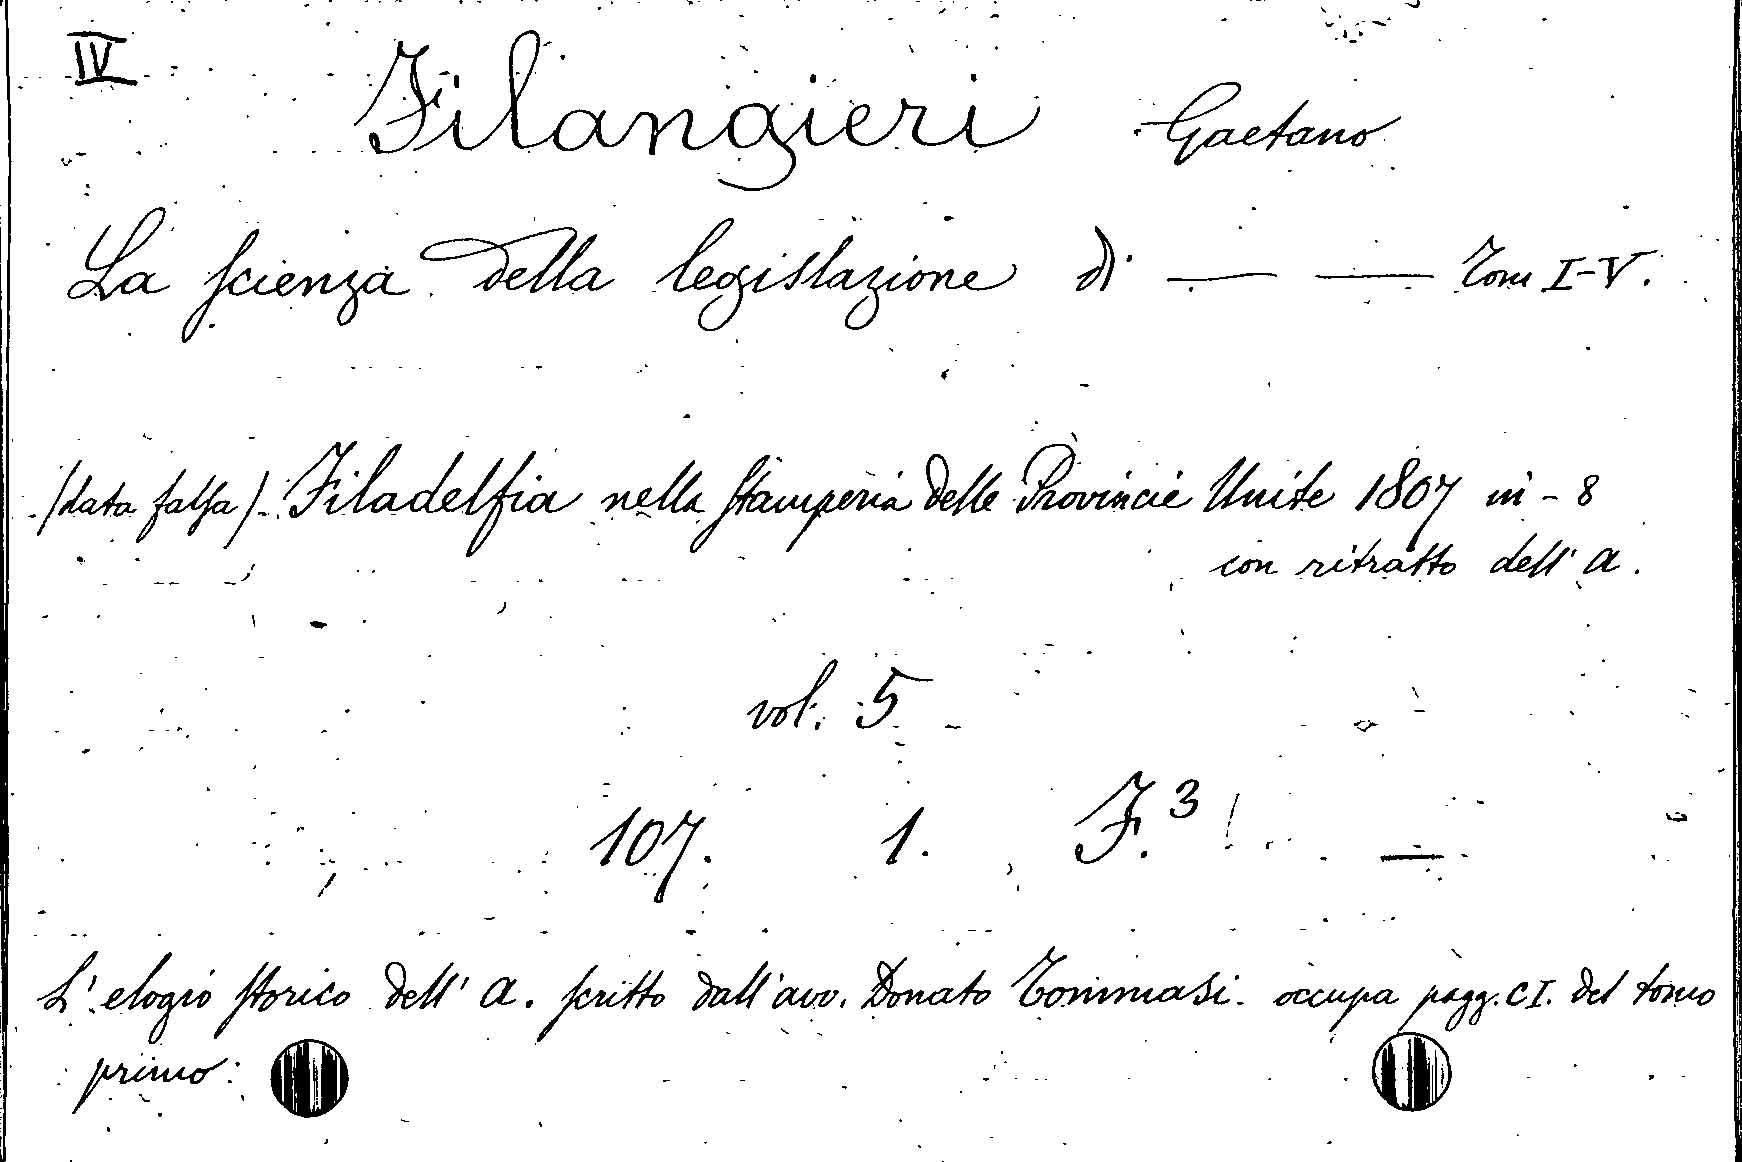 IV
Filangieri Gaetano
La scienza della legislazione di — — Tom I-V.
(data falsa) Filadelfia nella stamperia delle Provincie Unite 1807 in-8
con ritratto dell' a.
vol. 5
107. 1. F.3
L'elogio storico dell' a. scritto dall'avv. Donato Tommasi occupa pagg. CI. del tomo
primo.